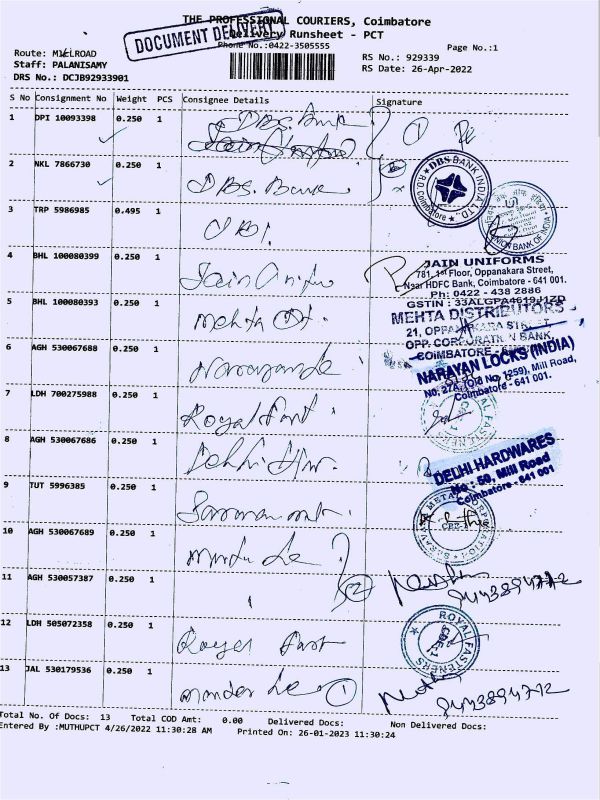 THE PROFESSIONAL COURIERS, Coimbatore
Delivery Runsheet - PCT
DOCUMENT DELIVERY
Phone No.:0422-3505555
Page No.:1
Route: MILLROAD
Staff: PALANISAMY
DRS No.: DCJB92933901
RS No.: 929339
RS Date: 26-Apr-2022
S No Consignment No Weight PCS Consignee Details Signature
1 DPI 10093398 0.250 1 DBS. Bank
2 NKL 7866730 0.250 1 DBS. Bank
DBS BANK INDIA LTD.
R.O. Coimbatore
3 TRP 5986985 0.495 1 UBI.
UNION BANK OF INDIA
4 BHL 100080399 0.250 1 Jain
JAIN UNIFORMS
781, 1st Floor, Oppanakara Street,
Near HDFC Bank, Coimbatore - 641 001.
Ph: 0422 - 438 2886
GSTIN : 33ALGPA4619J1ZD
5 BHL 100080393 0.250 1 Mehta Dt.
MEHTA DISTRIBUTORS
21, OPPANAKARA STREET,
OPP. CORPORATION BANK,
COIMBATORE
6 AGH 530067688 0.250 1
NARAYAN LOCKS (INDIA)
No. 27A, (Old No 1259), Mill Road,
Coimbatore - 641 001.
7 LDH 700275988 0.250 1 Royal Fast.
8 AGH 530067686 0.250 1 Delhi Hw.
DELHI HARDWARES
No : 50, Mill Road
Coimbatore - 641 001
9 TUT 5996385 0.250 1
10 AGH 530067689 0.250 1
11 AGH 530057387 0.250 1
12 LDH 505072358 0.250 1 Royal Fast
ROYAL FASTENERS
13 JAL 530179536 0.250 1
Total No. Of Docs: 13 Total COD Amt: 0.00 Delivered Docs: Non Delivered Docs:
Entered By :MUTHUPCT 4/26/2022 11:30:28 AM Printed On: 26-01-2023 11:30:24